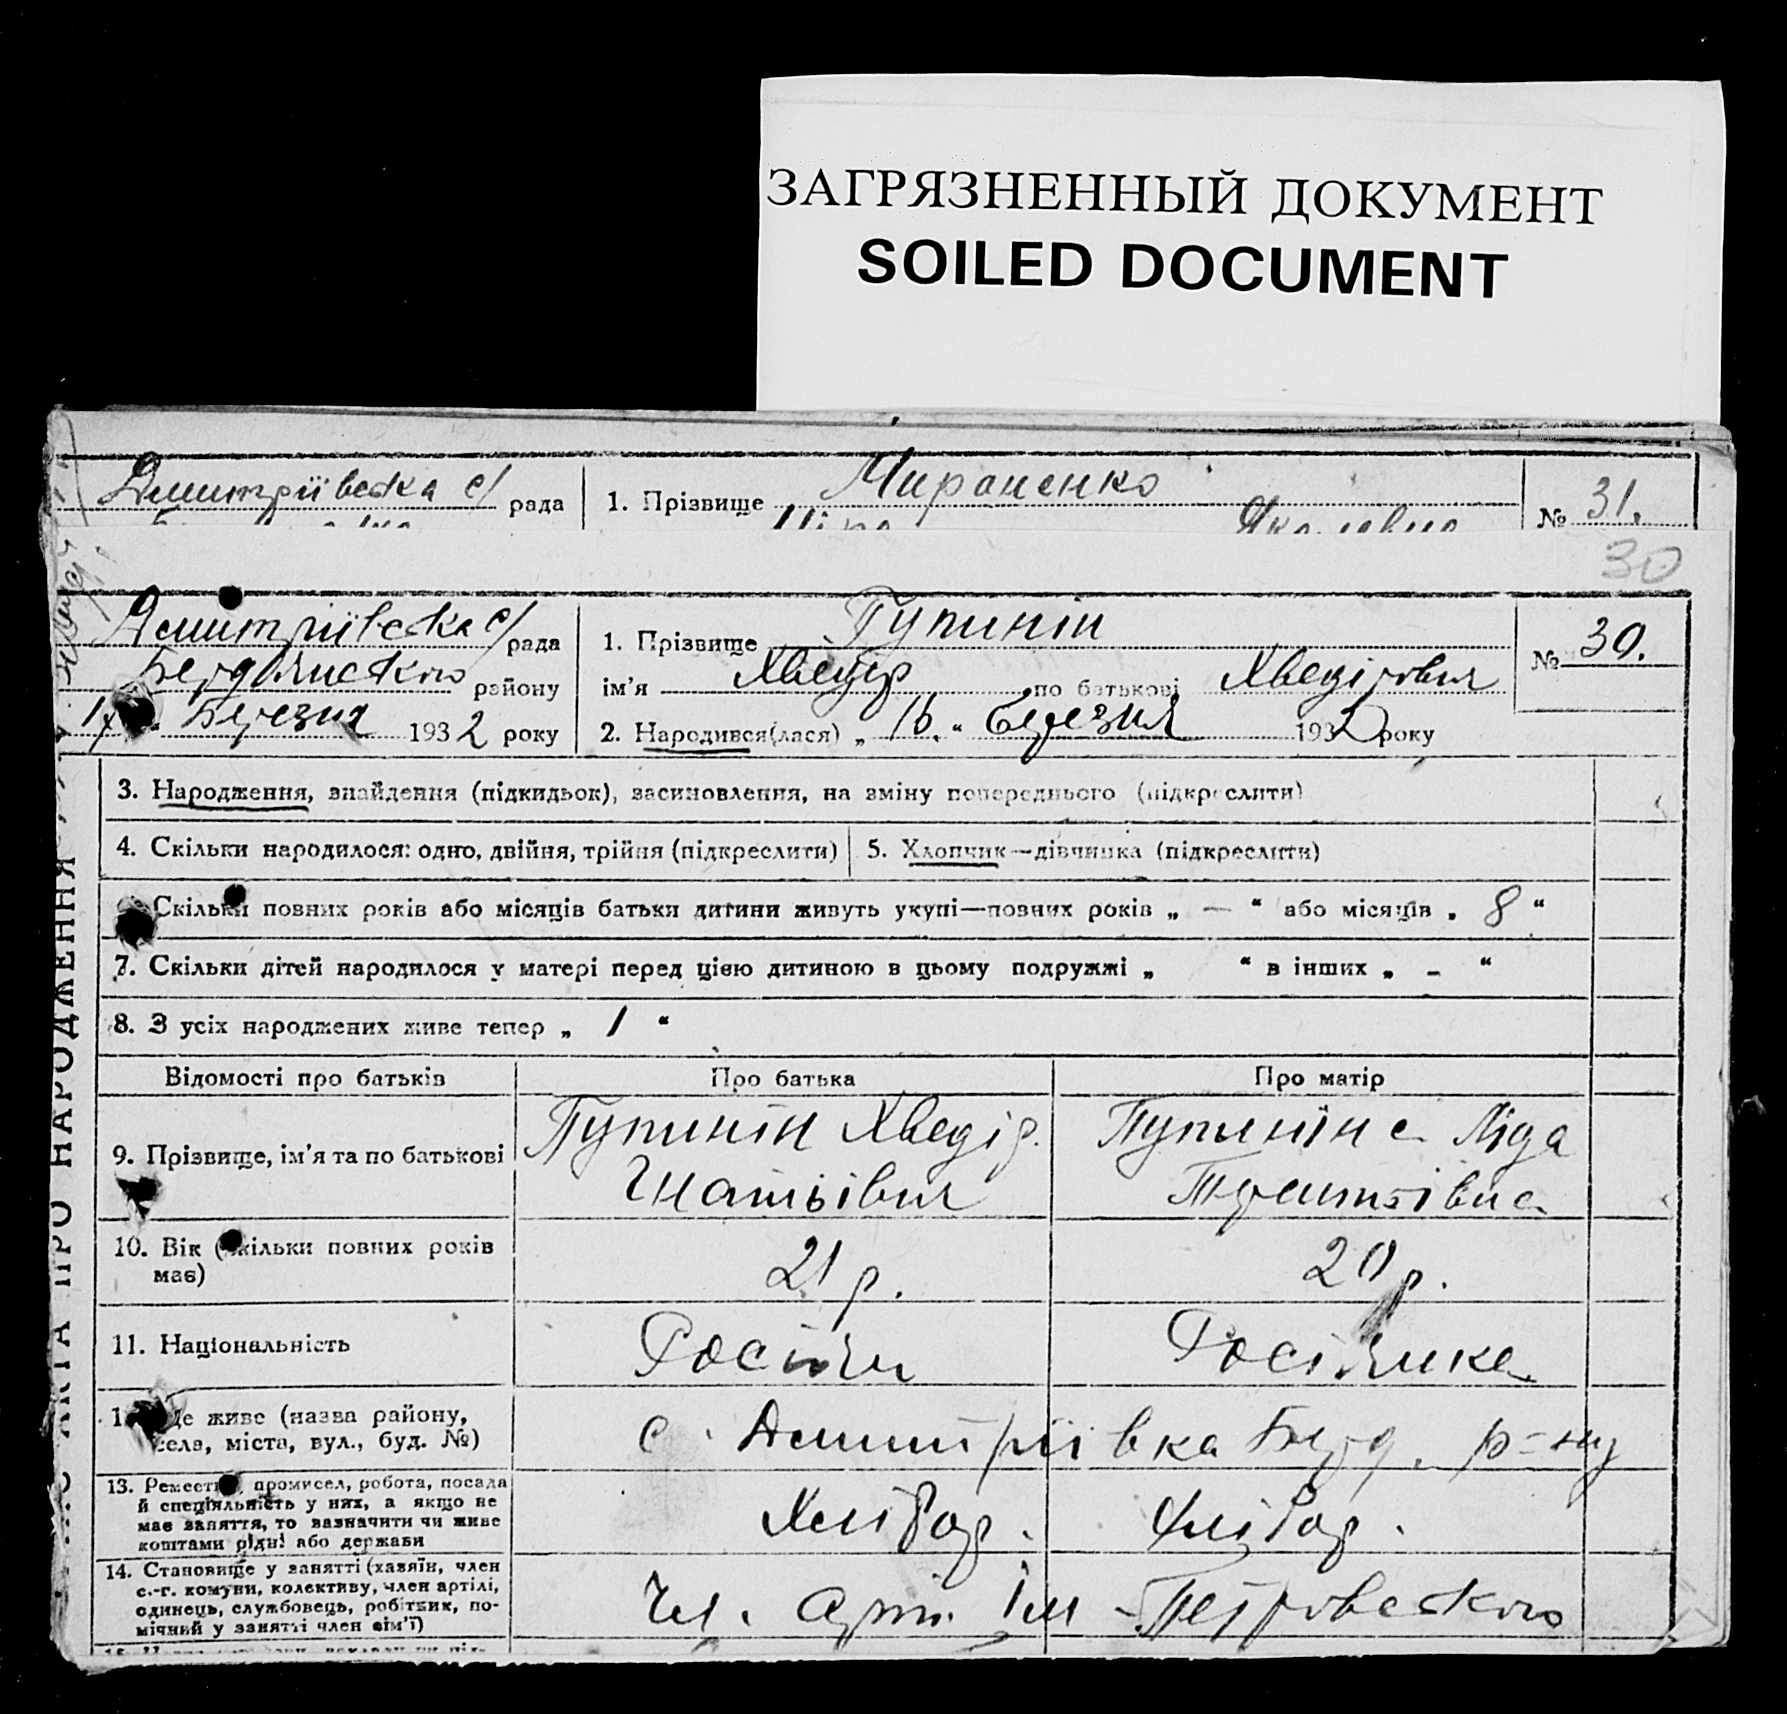 ЗАГРЯЗНЕННЫЙ ДОКУМЕНТ
SOILED DOCUMENT
Дмитріївська с/ рада
1. Прізвище Мироненко
№ 31.
30
Дмитріївська с/ рада
1. Прізвище Пупинін
№ 30.
Бердянського району
ім'я Хведір по батькові Хведірович
Березня 1932 року
2. Народився(лася) „ 16. “ Березня 1932 року
3. Народження, знайдення (підкидьок), засиновлення, на зміну попереднього (підкреслити)
4. Скільки народилося: одно, двійня, трійня (підкреслити)
5. Хлопчик—дівчинка (підкреслити)
Скільки повних років або місяців батьки дитини живуть укупі—повних років „ — “ або місяців „ 8 “
7. Скільки дітей народилося у матері перед цією дитиною в цьому подружжі „ “ в інших „ - “
8. З усіх народжених живе тепер „ 1 “
Відомості про батьків
Про батька
Про матір
9. Прізвище, ім'я та по батькові
Пупинін Хведір.
Гнатьівич
Пупиніна Ліда
10. Вік (скільки повних років
має)
21 р.
20 р.
11. Національність
Росіян
Росіянка
де живе (назва району,
села, міста, вул., буд. №)
с. Дмитріївка Берд. р-ну
13. Ремество, промисел, робота, посада
й спеціяльність у них, а якщо не
має заняття, то зазначити чи живе
коштами рідні або держави
Хлібор.
Хлібор.
14. Становище у занятті (хазяїн, член
с.-г. комуни, колективу, член артілі,
одинець, службовець, робітник, по-
мічний у занятті член сім'ї)
Чл. арт. Ім Петровського
АКТА ПРО НАРОДЖЕННЯ